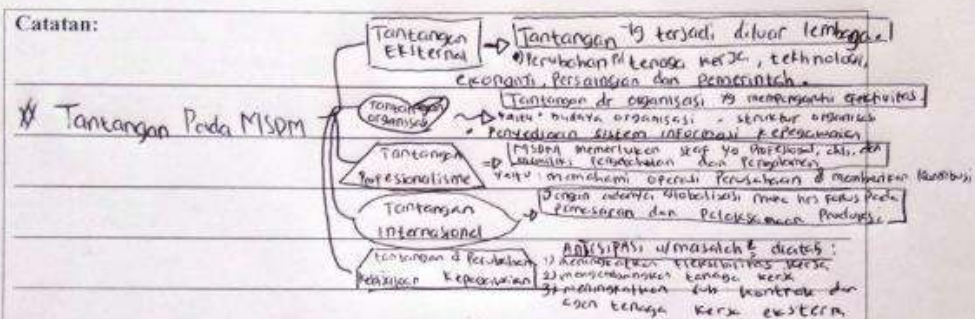 Catatan:
Tantangan
Eksternal
Tantangan yg terjadi diluar lembaga.
Perubahan tenaga kerja, tekhnologi,
ekonomi, Persaingan dan Pemerintah.
Tantangan Pada MSDM
Tantangan
organisasi
Tantangan dr organisasi yg mempengaruhi efektivitas.
Yaitu: budaya organisasi - struktur organisasi
• Penyediaan sistem informasi kepegawaian
Tantangan
Profesionalisme
MSDM memerlukan staf yg Profesional, dan
memiliki Pengetahuan dan Pengalaman
Yaitu: memahami operasi Perusahaan & memberikan kontribusi
Tantangan
Internasional
Dengan adanya Globalisasi hrs fokus Pada
Pemasaran dan Pelaksanaan Produksi.
Tantangan & Perubahan
Kebijakan Kepegawaian
ANTISIPASI u/masalah² diatas:
1) meningkatkan fleksibilitas kerja
2) mengembangkan tenaga kerja
3) meningkatkan sub kontrak dan
agen tenaga kerja ekstern